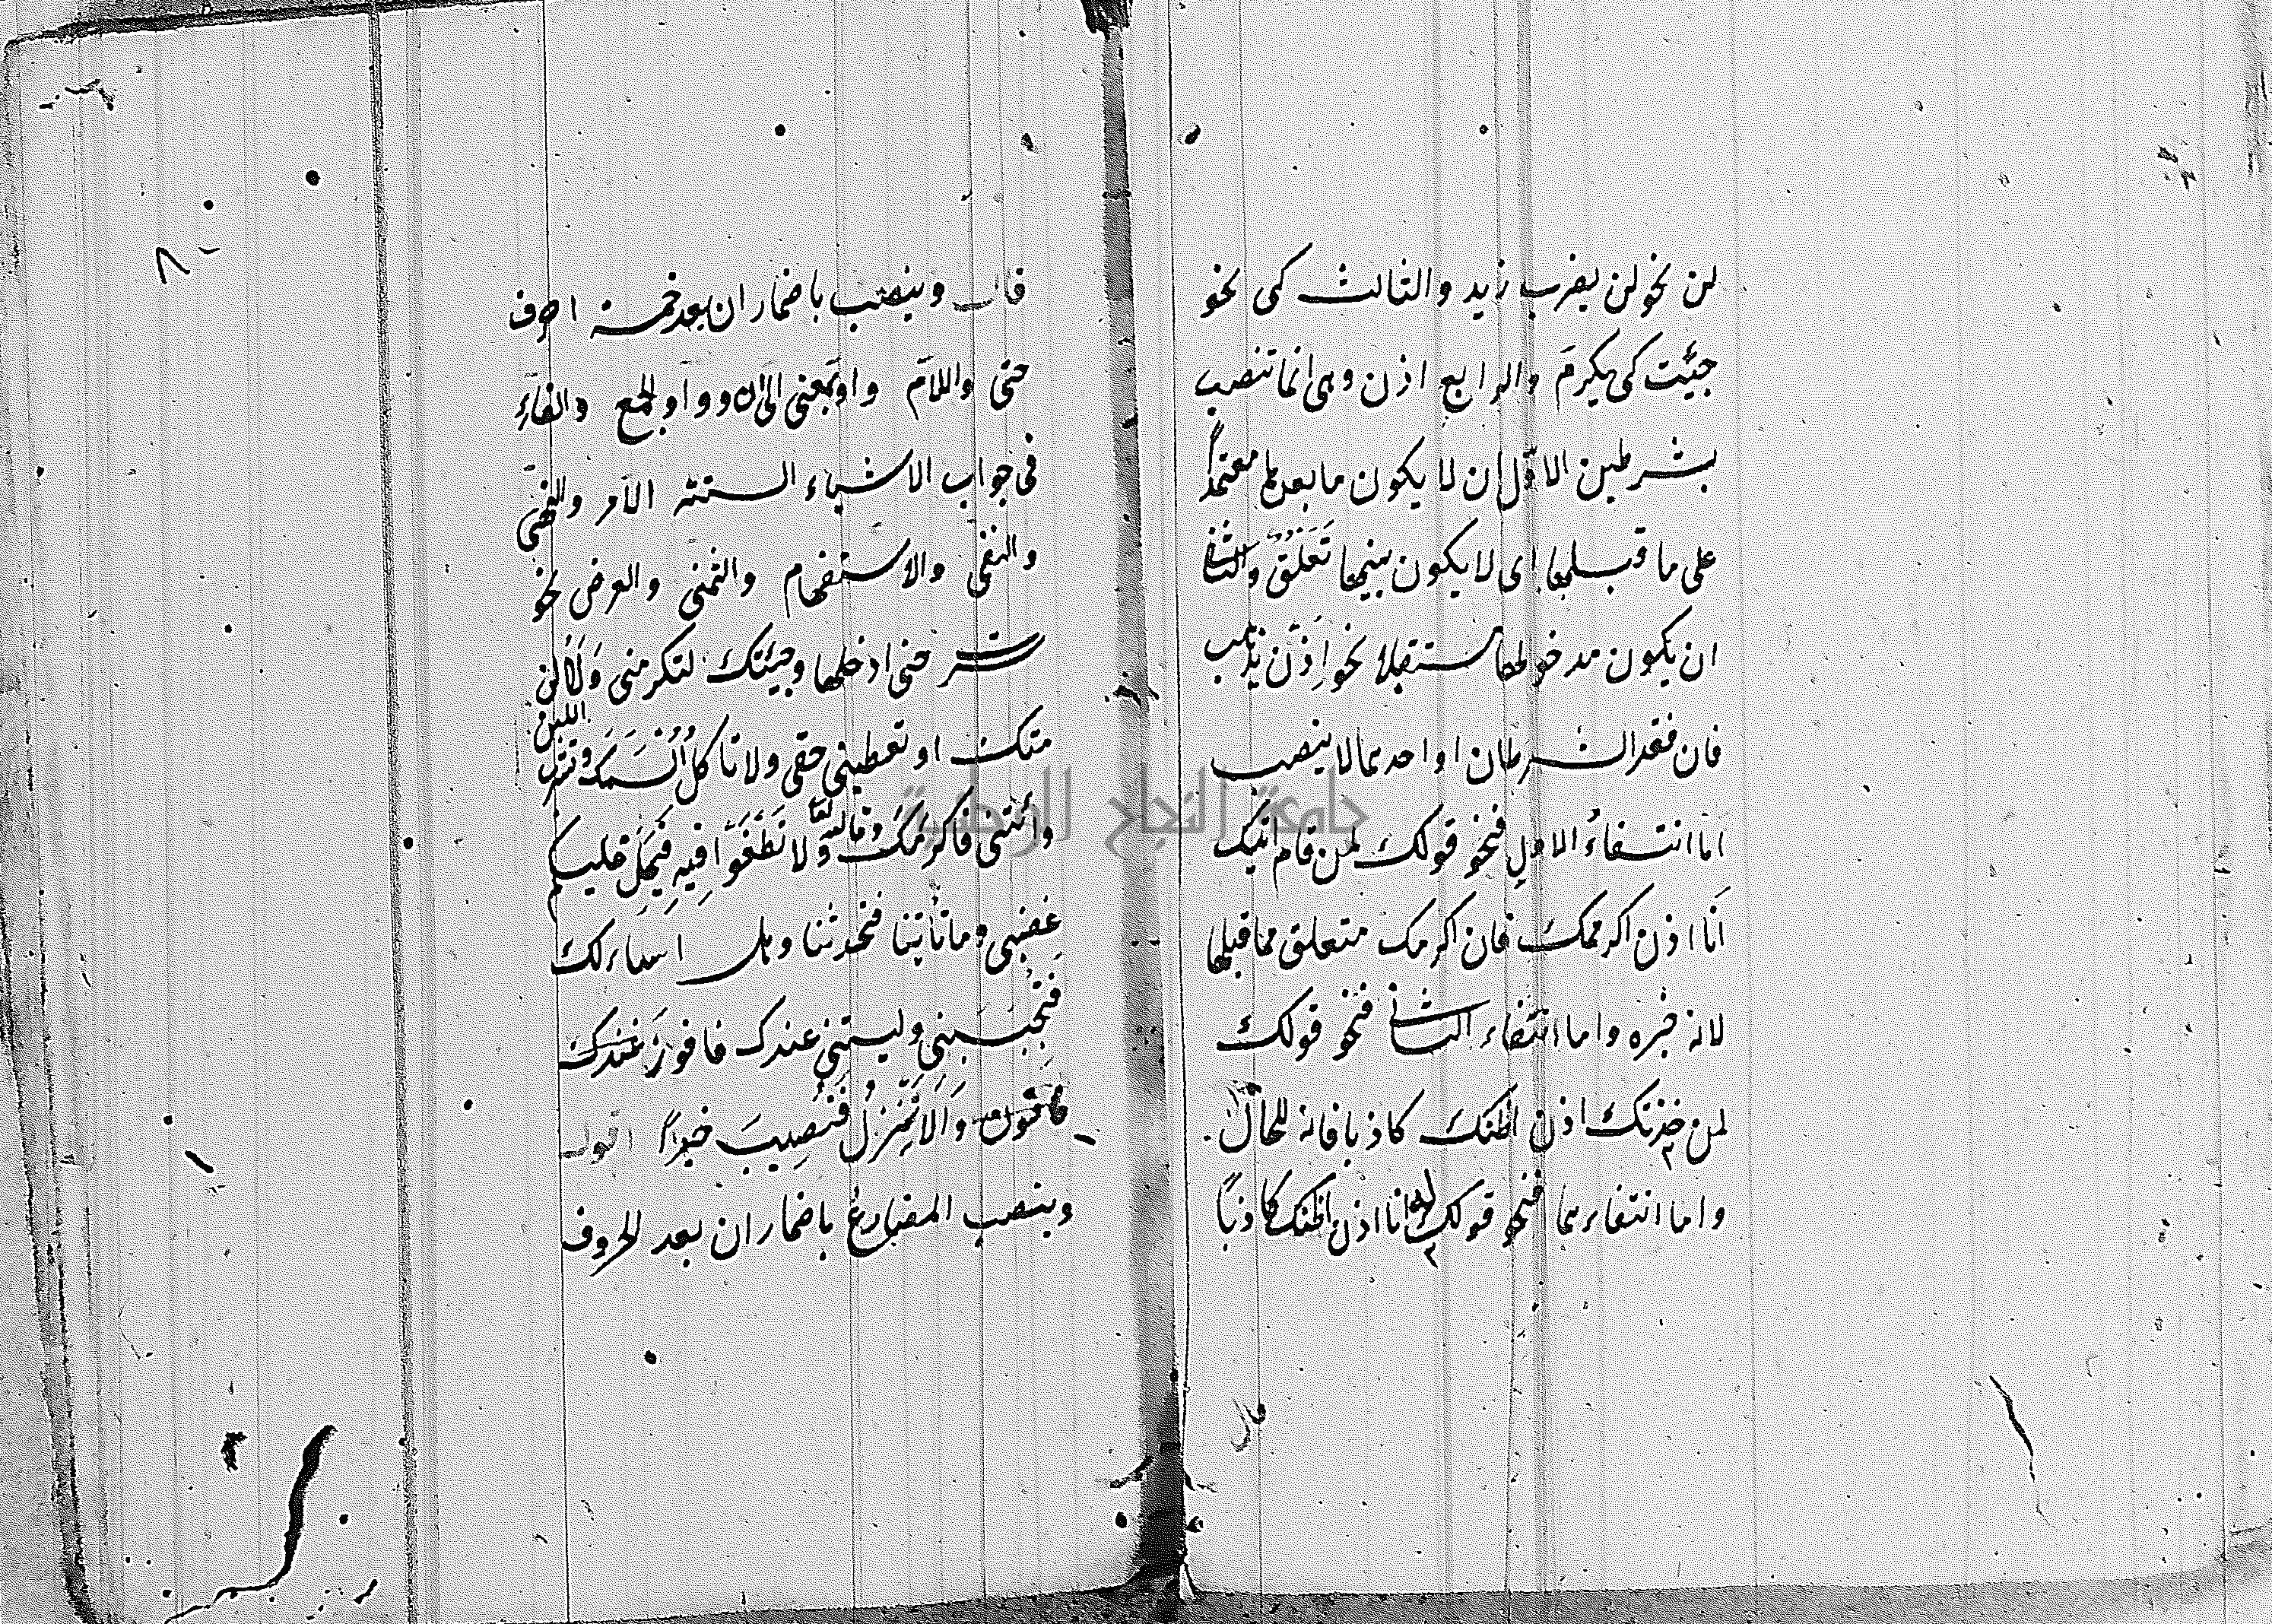 لن نحو لن يضرب زيد والثالث كى نحو
جيئت كى يكرمَ والرابع اذن وهى انما تنصب
بشرطين الاوّل ان لا يكون ما بعدها معتمداً
على ما قبلها اى لا يكون بينهما تَعَلّقٌ والثانى
ان يكون مدخولها مستقبلا نحو اِذَن يذهب
فان فقد الشرطان او احدهما لا ينصب
اما انتفاءُ الاول فنحو قولك لمن قام اتيك
اَنا اذن اكرمك فان اكرمك متعلق بما قبلها
لانه خبره واما انتفاء الثانى فنحو قولك
لمن حدثك اذن اظنك كاذبا فانه للحال
واما انتفاءهما فنحو قولك له انا اذن اظنك كاذباً
قال
قال وينصب باضمار ان بعد خمسة احرف
حتى واللام واو بمعنى الى ان وواو الجمع والفاء
فى جواب الاشياء الستة الامر والنهى
والنفى والاستفهام والتمنى والعرض نحو
سرت حتى ادخلها وجيئتك لتكرمنى ولالز
متك او تعطينى حقى ولا تاكل السمك وتشرب اللبن
وائتنى فاكرمَكَ وقال الله تعا ولا تَطْغَوْا فِيهِ فَيَحِلَّ عليكم
غضبى وما تأتينا فتحدثنا وهل اسئلك
فَتُجيبَنى وليتنى عندك فافوزَ عندك
فافوز وَاَلا تَنْزِلُ فَتُصِيبَ خيراً اقول
وينصب المضارع باضمار ان بعد الحروف
جامعة النجاح الوطنية